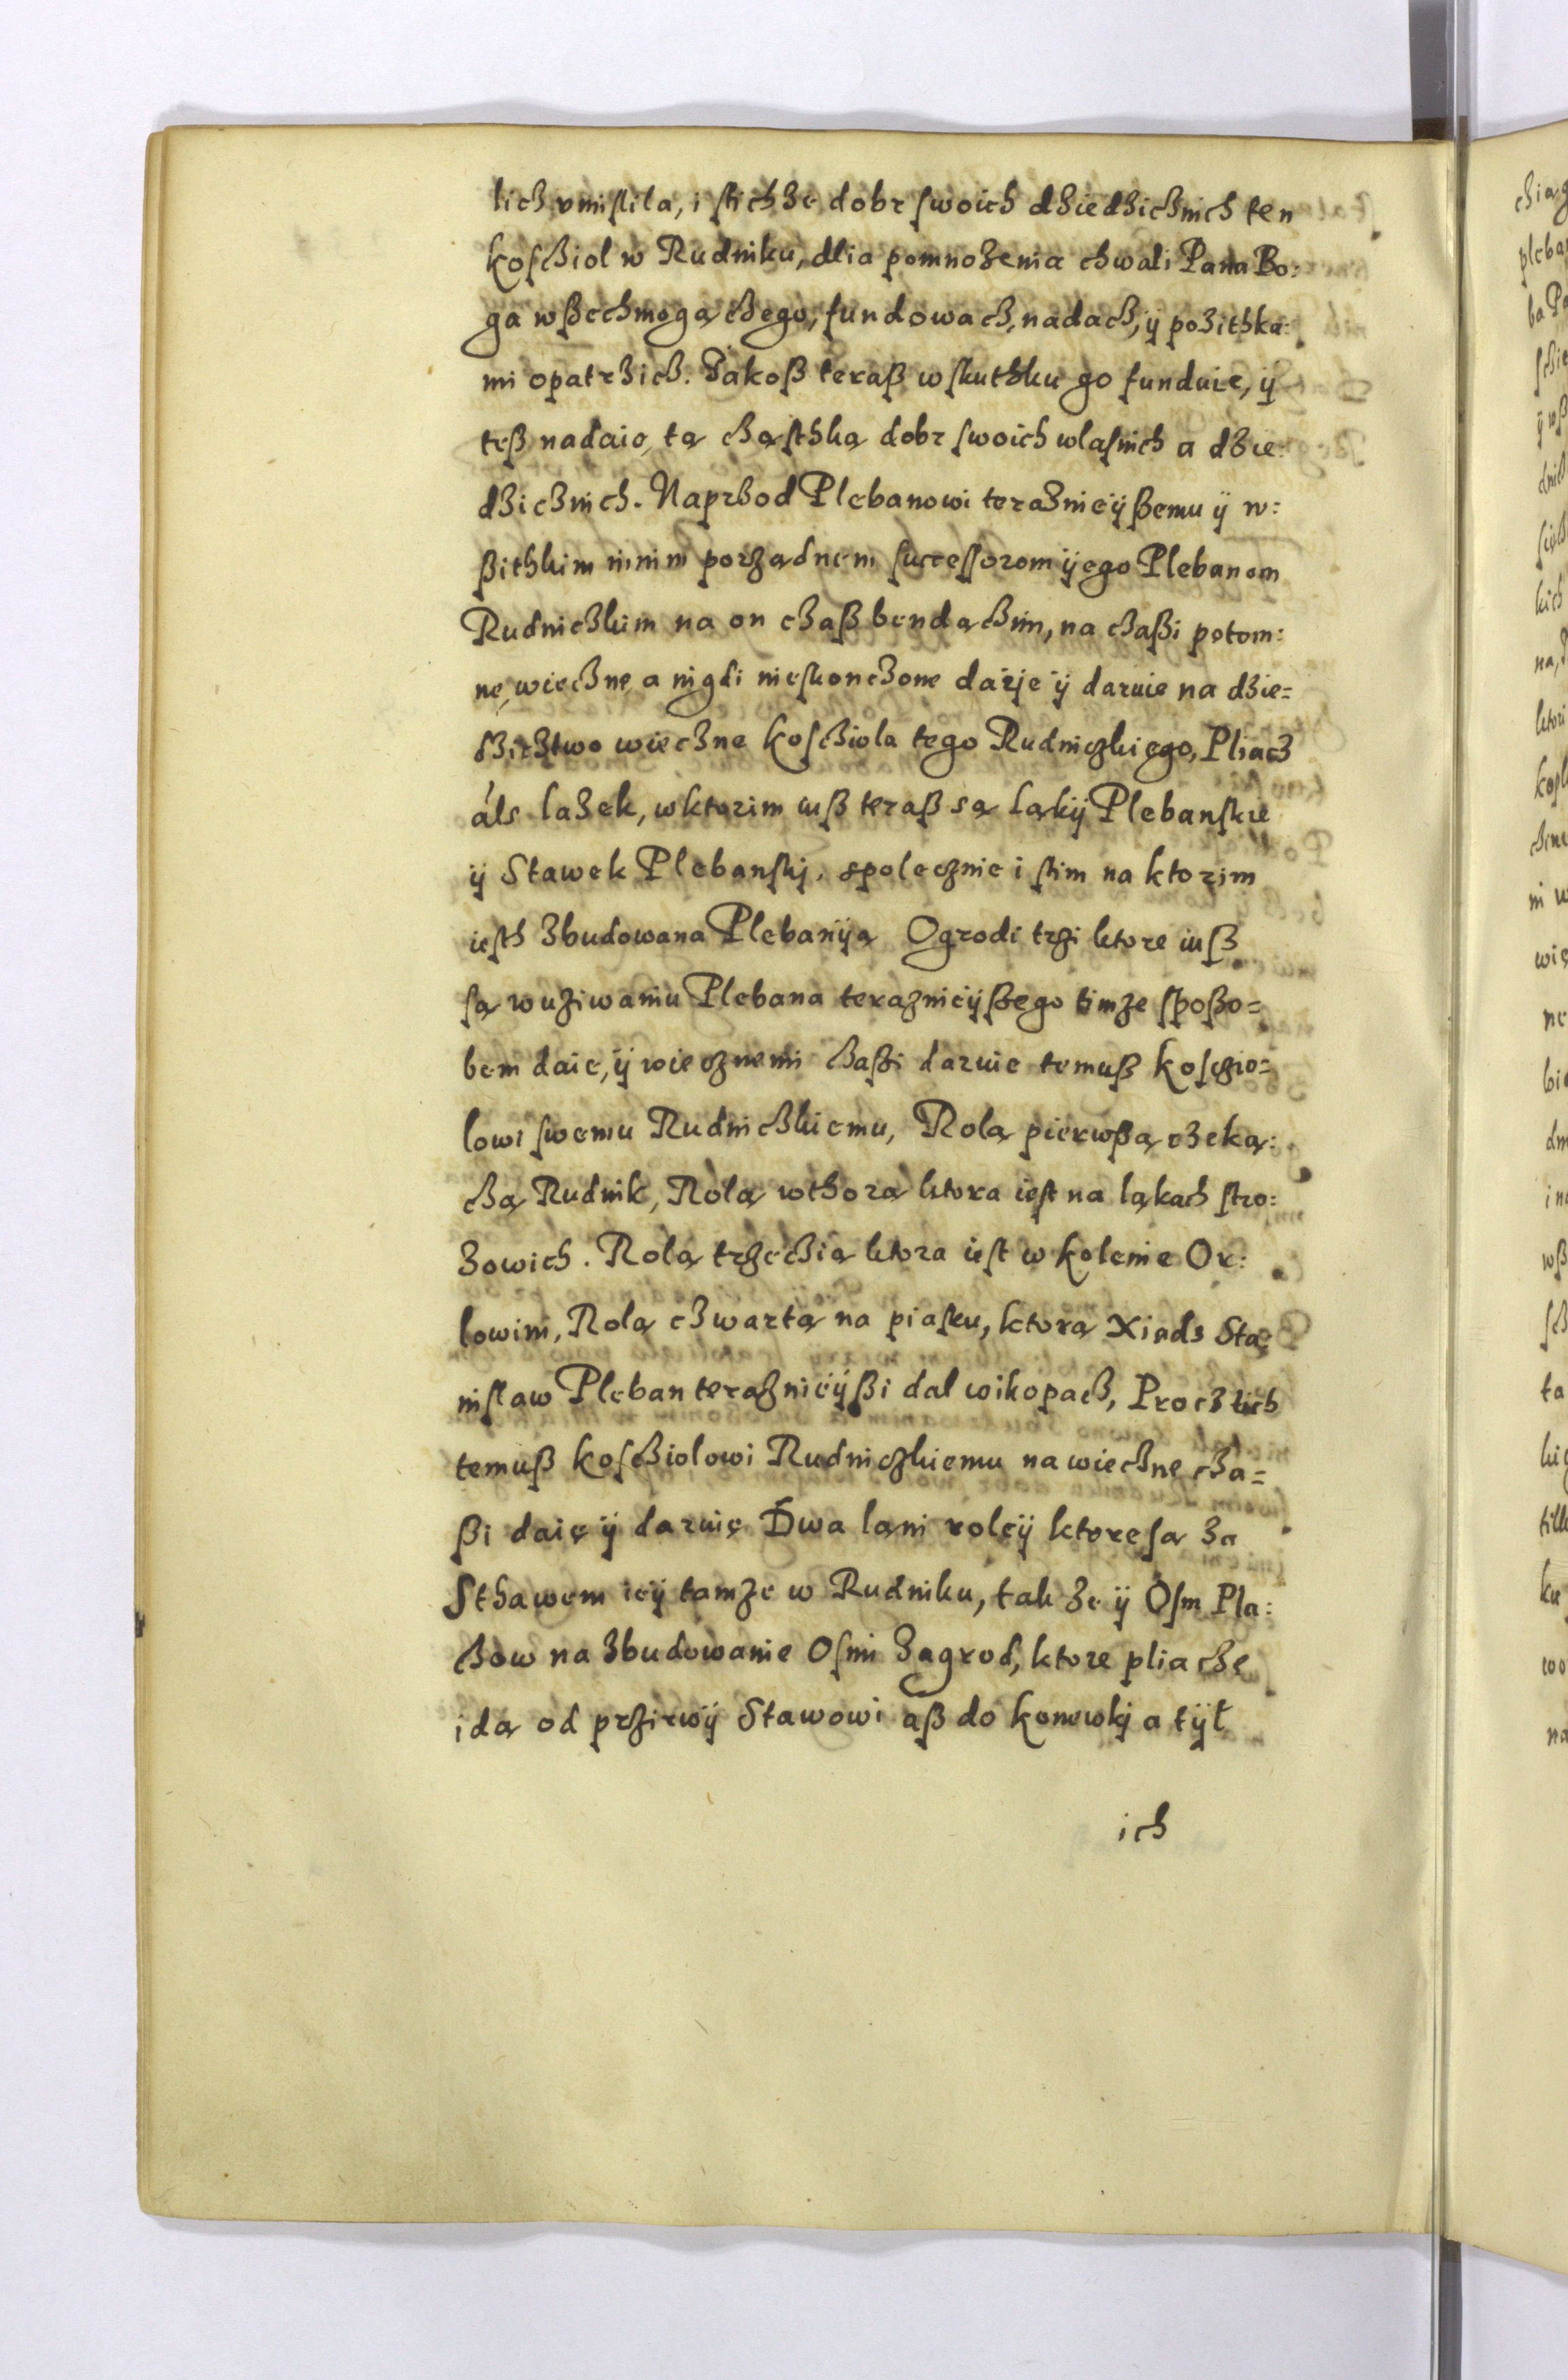 lich vmislila, i stichze dobr swoich dziedzicznich ten
koscziol w Rudniku, dlia pomnozenia chwali Pana Bo:
ga wßechmogączego, fundowacz, nadacz, ÿ pozithka:
mi opatrzicz. Jakoß teraß w skuthku go funduie, ÿ
teß nadaie, tą cząsthką dobr swoich wlasnich a dzie:
dzicznich. Naprzod Plebanowi teraznieÿßemu ÿ w:
ßithkim innim porządnem successorom ÿego Plebanom
Rudniczkim na on czaß bendączim, na czaßi potom:
ne, wieczne, a nigdi nieskonczone daije ÿ daruie na dzie=
dzicztwo wieczne koscziola tego Rudniczkiego, Pliacz
als lazek, w ktorim iuß teraß są Ląkÿ Plebanskie
ÿ Stawek Plebanskj, spolecznie i stim na ktorim
iesth zbudowana Plebanÿa Ogrodi trzi ktore iuß
są w uziwaniu Plebana terazniejÿßego timze sposzo=
bem daie, ÿ wiecznemi czaßi daruie temuß kosczio=
lowi swemu Rudniczkiemu, Rolą pierwßą rzeką:
czą Rudnik, Rolą wthorą ktora iest na ląkach stro:
zowich. Rolą trzeczią ktora iest w kolenie Or:
lowim, Rolą czwartą na piasku, ktorą Xiądz Sta:
nislaw Pleban terazniejÿßi dal wikopacz, Procz tich
temuß koscziolowi Rudniczkiemu na wieczne cza=
ßi daię ÿ daruię Dwa lani roleÿ ktore są za
Sthawem ieÿ tamze w Rudniku, tak ze ÿ Osm Pla:
czow na zbudowanie Osmi Zagrod, ktore pliacze
idą od przirwÿ Stawowi aß do konowkj a tÿł
ich